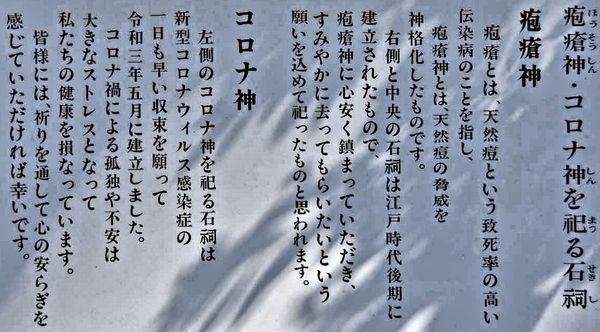 疱瘡神・コロナ神を祀る石祠
疱瘡神
疱瘡とは、天然痘という致死率の高い
伝染病のことを指し、
疱瘡神とは、天然痘の脅威を
神格化したものです。
右側と中央の石祠は江戸時代後期に
建立されたもので、
疱瘡神に心安く鎮まっていただき、
すみやかに去ってもらいたいという
願いを込めて祀ったものと思われます。
コロナ神
左側のコロナ神を祀る石祠は
新型コロナウィルス感染症の
一日も早い収束を願って
令和三年五月に建立しました。
コロナ禍による孤独や不安は
大きなストレスとなって
私たちの健康を損なっています。
皆様には、祈りを通して心の安らぎを
感じていただければ幸いです。